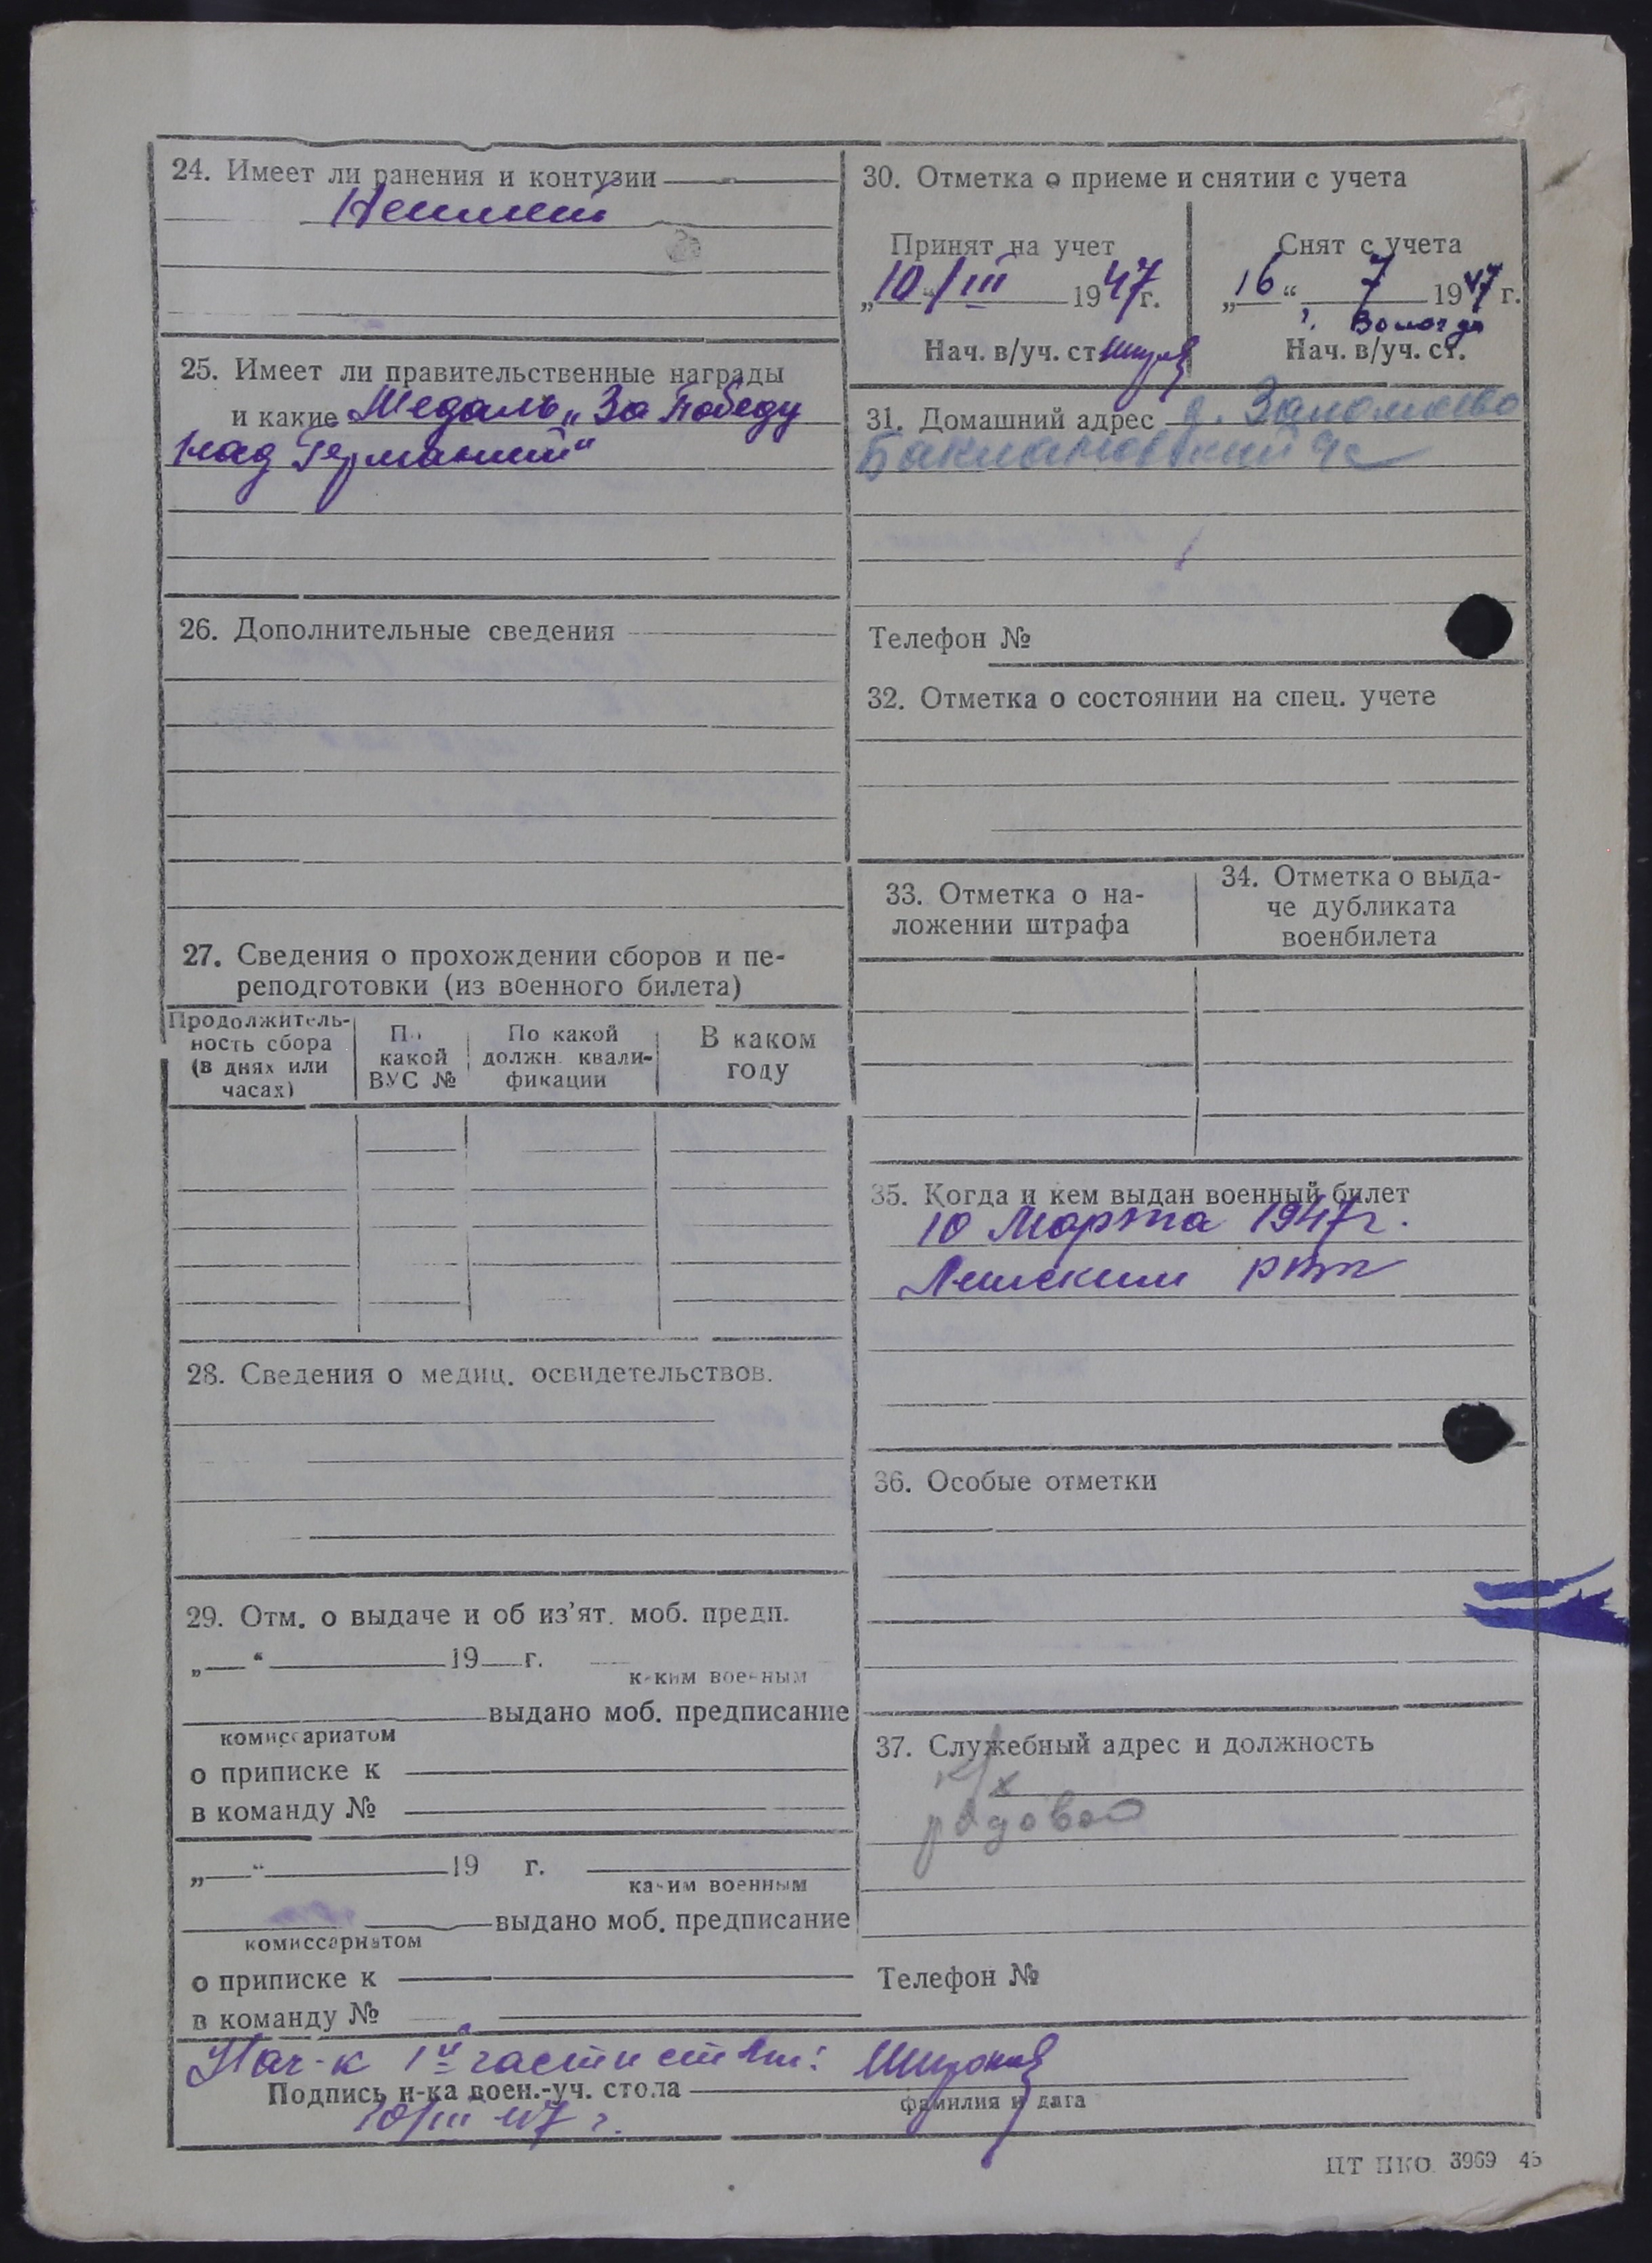 24. Имеет ли ранения и контузии
Неимеет
25. Имеет ли правительственные награды
и какие Медаль „За победу
над Германией“
26. Дополнительные сведения
27. Сведения о прохождении сборов и пе-
реподготовки (из военного билета)
Продолжитель-
ность сбора
(в днях или
часах)
По
какой
ВУС №
По какой
должн. квали-
фикации
В каком
году
28. Сведения о медиц. освидетельствов.
29. Отм. о выдаче и об из’ят. моб. предп.
„ “ 19 г.
каким военным
выдано моб. предписание
комиссариатом
о приписке к
в команду №
„ “ 19 г.
каким военным
выдано моб. предписание
комиссариатом
о приписке к
в команду №
30. Отметка о приеме и снятии с учета
Принят на учет
„10“ III 1947г.
Нач. в/уч. ст.
Снят с учета
„16“ 7 1947 г.
г. Вологда
Нач. в/уч. ст.
31. Домашний адрес д.
Баклановский
Телефон №
32. Отметка о состоянии на спец. учете
33. Отметка о на-
ложении штрафа
34. Отметка о выда-
че дубликата
военбилета
35. Когда и кем выдан военный билет
10 Марта 1947г.
36. Особые отметки
37. Служебный адрес и должность
к/х
рядовой
Телефон №
Нач-к 1й части
Подпись н-ка воен.-уч. стола
фамилия и дата
10/III 47 г.
ЦТ ПКО 3969 45